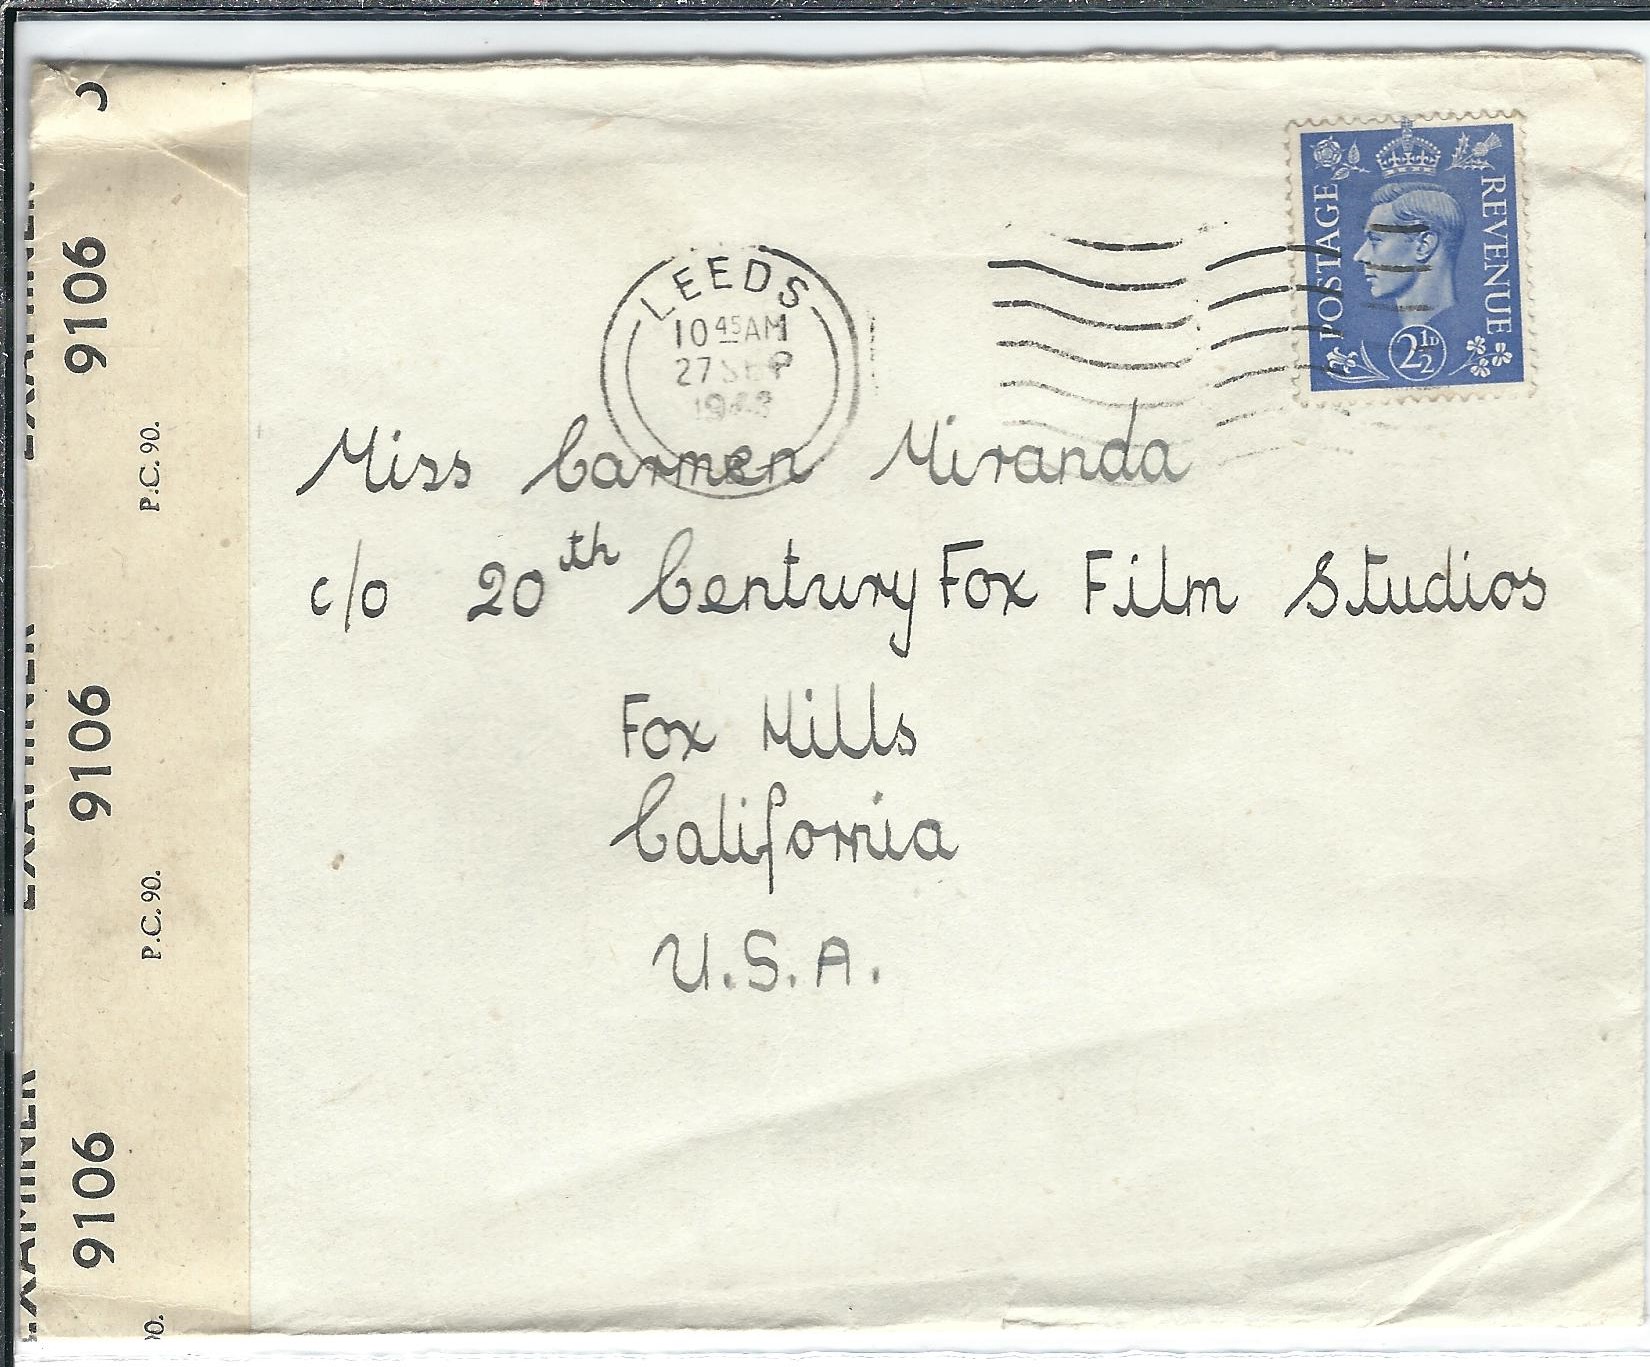 LEEDS
10 45 AM
27 SEP
1943
POSTAGE
REVENUE
2 1/2 D
Miss Carmen Miranda
c/o 20th Century Fox Film Studios
Fox Hills
California
U.S.A.
EXAMINER
9106
P.C. 90.
EXAMINER
9106
P.C. 90.
EXAMINER
9106